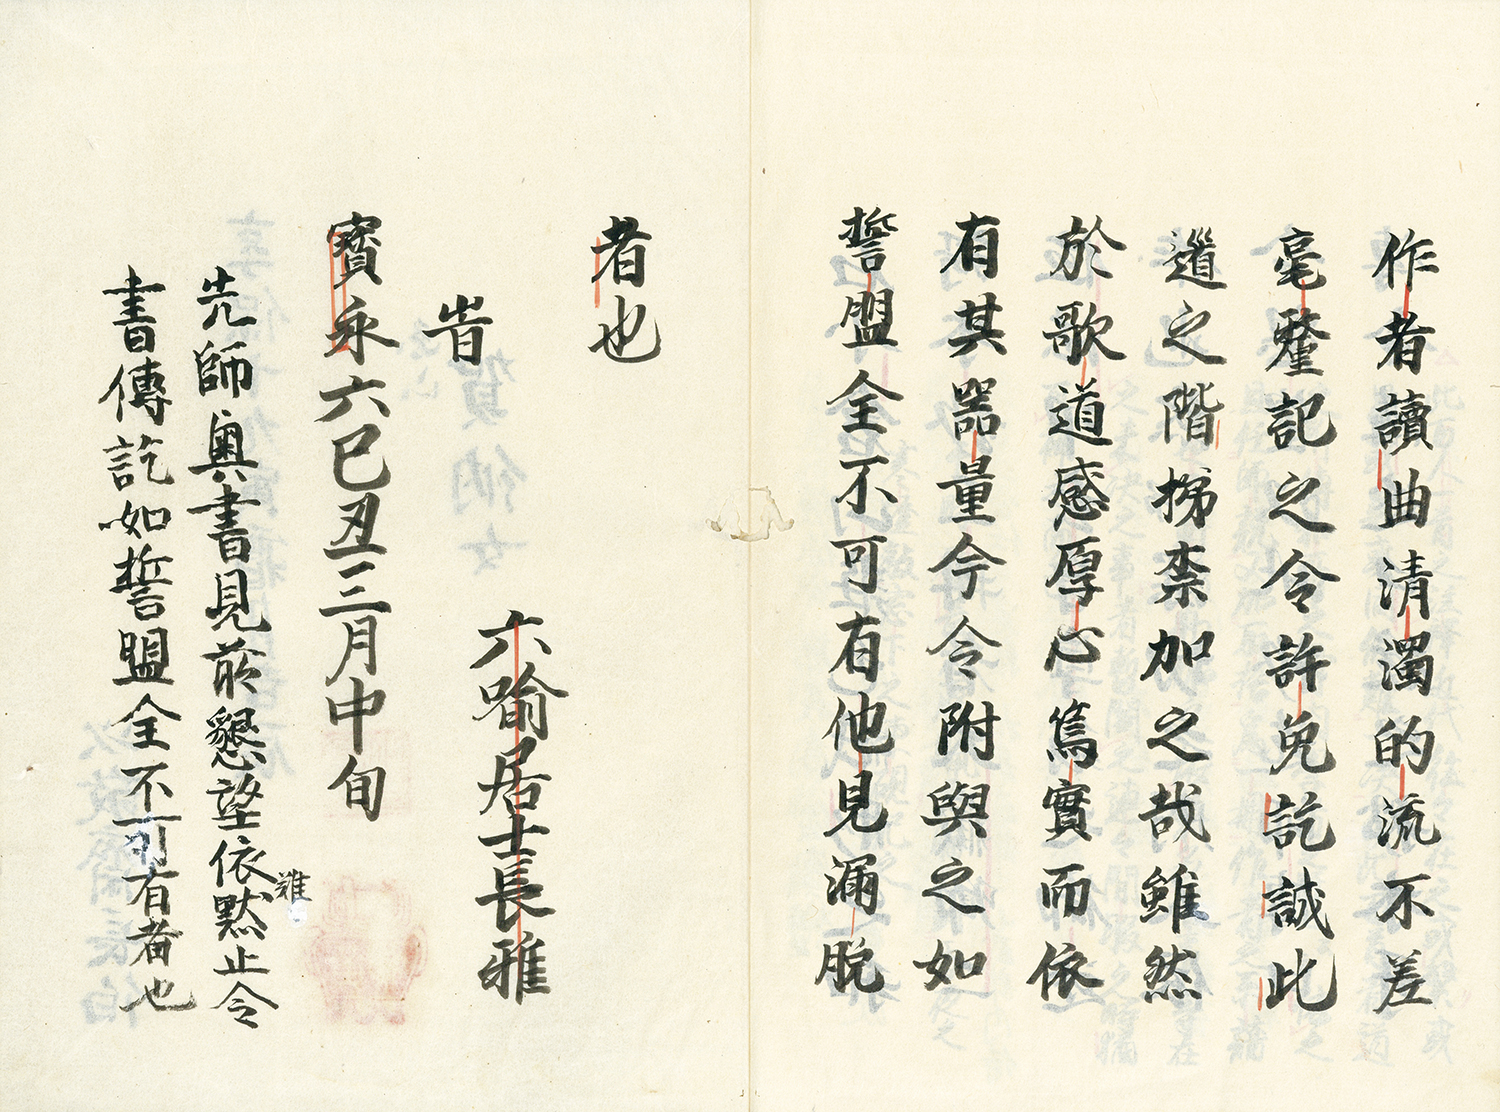 作者讀曲清濁的流不差
毫釐記之令許免訖誠此
道之階梯柰加之哉雖然
於歌道感厚心篤實而依
有其器量今令附與之如
誓盟全不可有他見漏脱
者也
六喩居士長雅
旹
寳永六己丑三月中旬
先師奥書見前懇望依難黙止令
書傳訖如誓盟全不可有者也